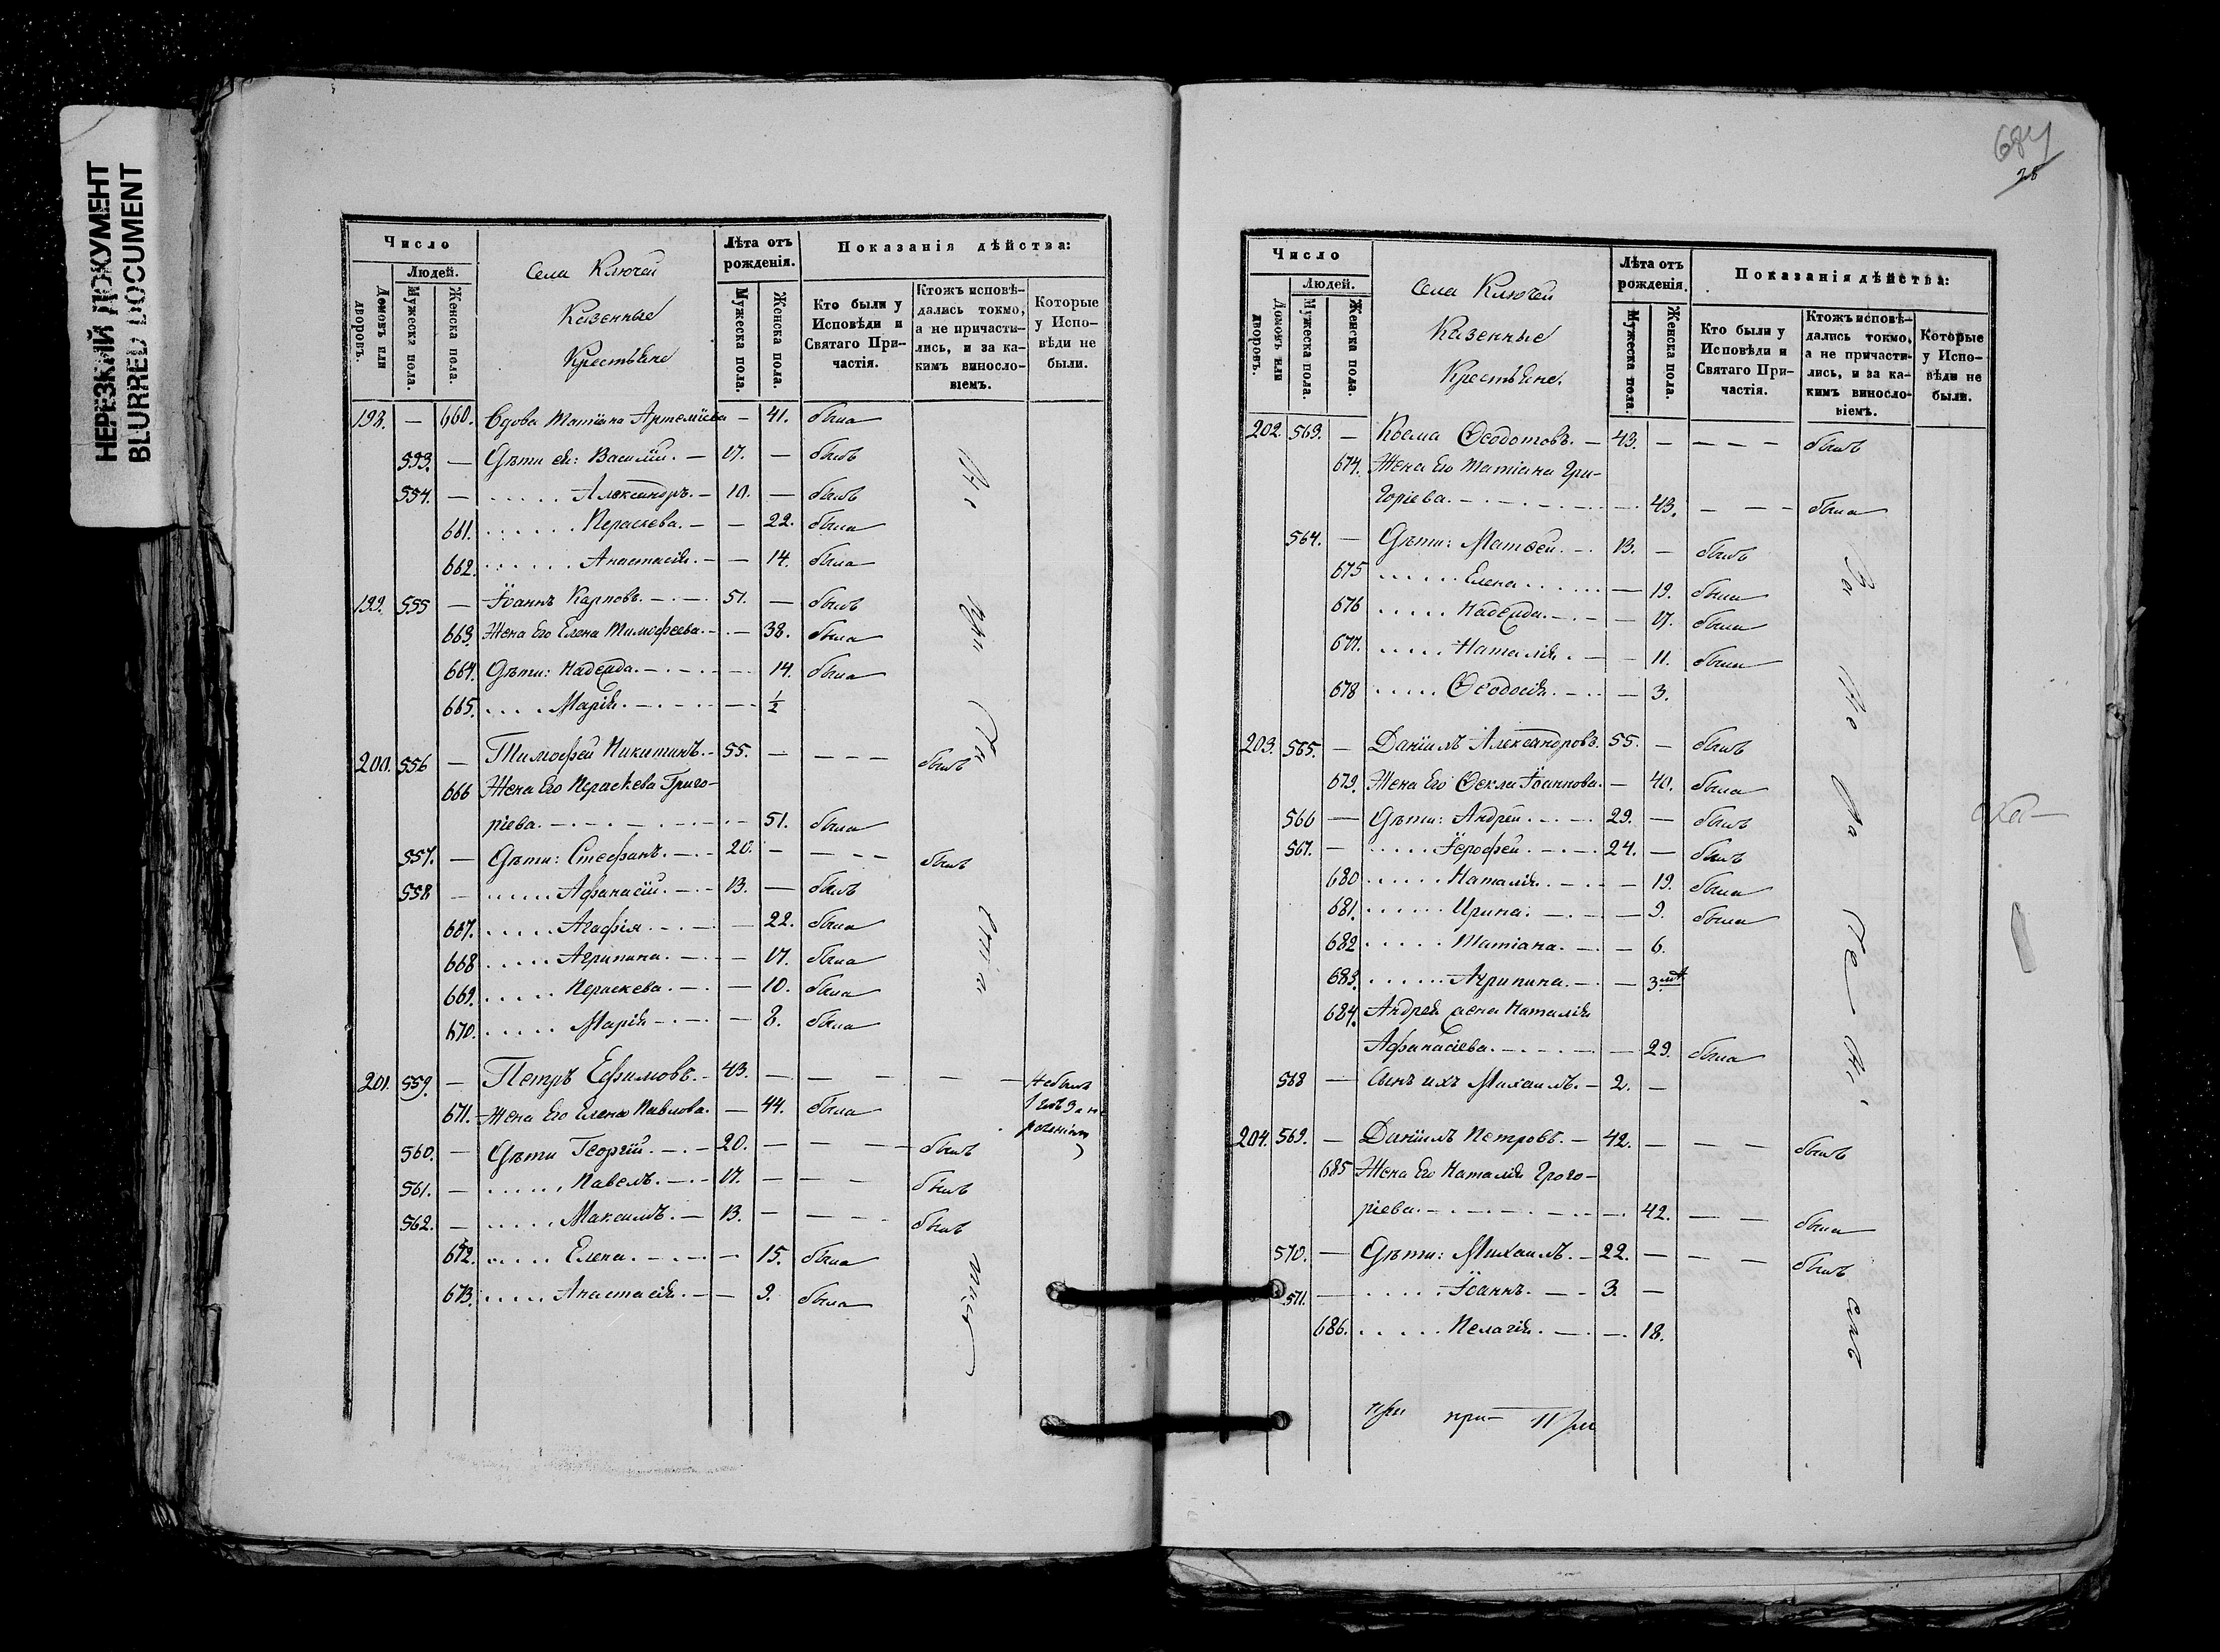 НЕРЕЗКИЙ ДОКУМЕНТ
BLURRED DOCUMENT
Число
Людей.
Домовъ или дворовъ.
Мужеска пола.
Женска пола.
Села Ключей
Казенные
Крестьяне
Лѣта отъ рожденія.
Мужеска пола.
Женска пола.
Показанія дѣйства:
Кто были у Исповѣди и Святаго При-частія.
Ктожъ исповѣ-дались токмо, а не причасти-лись, и за ка-кимъ винослo-віемъ.
Которые у Испо-вѣди не были.
198. — 660. Вдова Татіана Артеміева — 41. была
553. — Дѣти ея: Василій. — 17. — былъ
554. — . . . . . Александръ. — 10. — былъ
661. . . . . . . Параскева. — — 22. была
662. . . . . . . Анастасія. — — 14. была
199. 555 — Іоаннъ Карповъ. — 51. — былъ
663. Жена Его Елена Тимофеева. — — 38. была
664. Дѣти: Надежда. — — 14. была
665. . . . . Марія. — — ½
200. 556 — Тимофей Никитинъ. — 55. — — — — былъ
666 Жена Его Параскева Григо-
ріева. — — 51. была
557. — Дѣти: Стефанъ. — 20. — — — — былъ
558 — . . . . . Афанасій. — 13. — былъ
667. . . . . . Агафія. — — 22. была
668 . . . . . Агрипина. — — 17. была
669. . . . . . Параскева. — — 10. была
670. . . . . . Марія — — 8. была
201. 559. — Петръ Ефимовъ. — 43. — — — — — Небылъ
671. Жена Его Елена Павлова. — 44. была
560. — Дѣти Георгій. — 20. — — — былъ
561. — . . . . . Павелъ. — 17. — — — былъ
562. — . . . . . Максимъ. — 13. — — — былъ
672. . . . . . Елена. — — 15. была
673. . . . . . Анастасія. — — 9. была
684
28
Число
Людей.
Домовъ или дворовъ.
Мужеска пола.
Женска пола.
Села Ключей
Казенные
Крестьяне.
Лѣта отъ рожденія.
Мужеска пола.
Женска пола.
Показанія дѣйства:
Кто были у Исповѣди и Святаго При-частія.
Ктожъ исповѣ-дались токмо, а не причасти-лись, и за ка-кимъ винослo-віемъ.
Которые у Испо-вѣди не были.
202. 563. — Косма Ѳеодотовъ. — 43. — — — — былъ
674. Жена Его Татіана Гри-
горіева. — — 43. — — — была
564. — Дѣти: Матѳей. — 13. — былъ
675 . . . . . . Елена. . . . . . — 19. была
676 . . . . . Надежда. — — 17. была
677. . . . . . Наталія. — — 11. была
678 . . . . . Ѳеодосія. — — 3.
203. 565. — Даніилъ Александровъ. 55. — былъ
679. Жена Его Ѳекла Іоаннова. — 40. была
566 — Дѣти: Андрей. — 29. — былъ
567. — . . . . . Іерофей. — 24. — былъ
680 . . . . . . Наталія. — — 19. была
681. . . . . . . Ирина. — — 9. была
682 . . . . . Татіана. — — 6.
683. . . . . . . Агрипина. — — 3
684. Андрея жена Наталія
Афанасіева. — — 29. была
568 — Сынъ ихъ Михаилъ. — 2. —
204. 569. — Даніилъ Петровъ. — 42. — — — былъ
685 Жена Его Наталія Григо-
ріева. — — 42. — — была
570. — Дѣти: Михаилъ. — 22. — — — былъ
571. — . . . . . Іоаннъ. — 3. —
686. . . . . . Пелагія. — — 18.